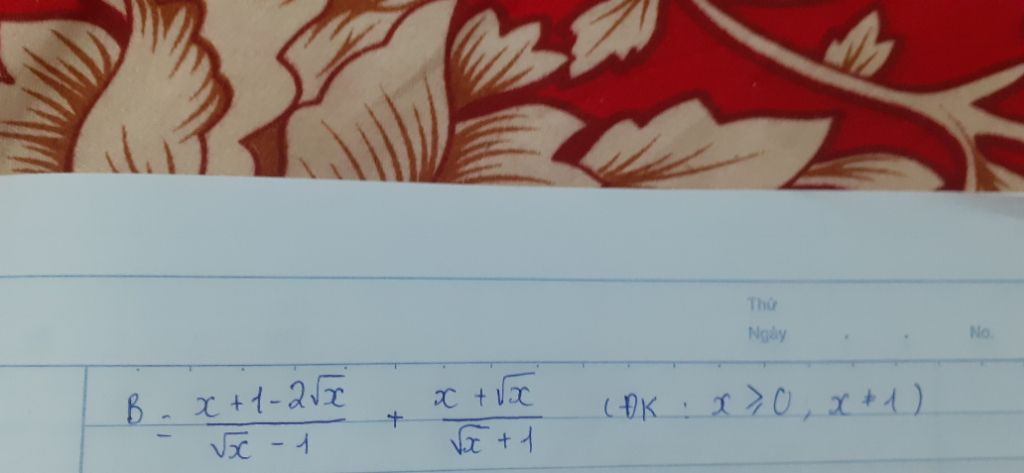 Thứ
Ngày . . No.
B = \frac{x + 1 - 2\sqrt{x}}{\sqrt{x} - 1} + \frac{x + \sqrt{x}}{\sqrt{x} + 1} (ĐK : x ⩾ 0, x ≠ 1)